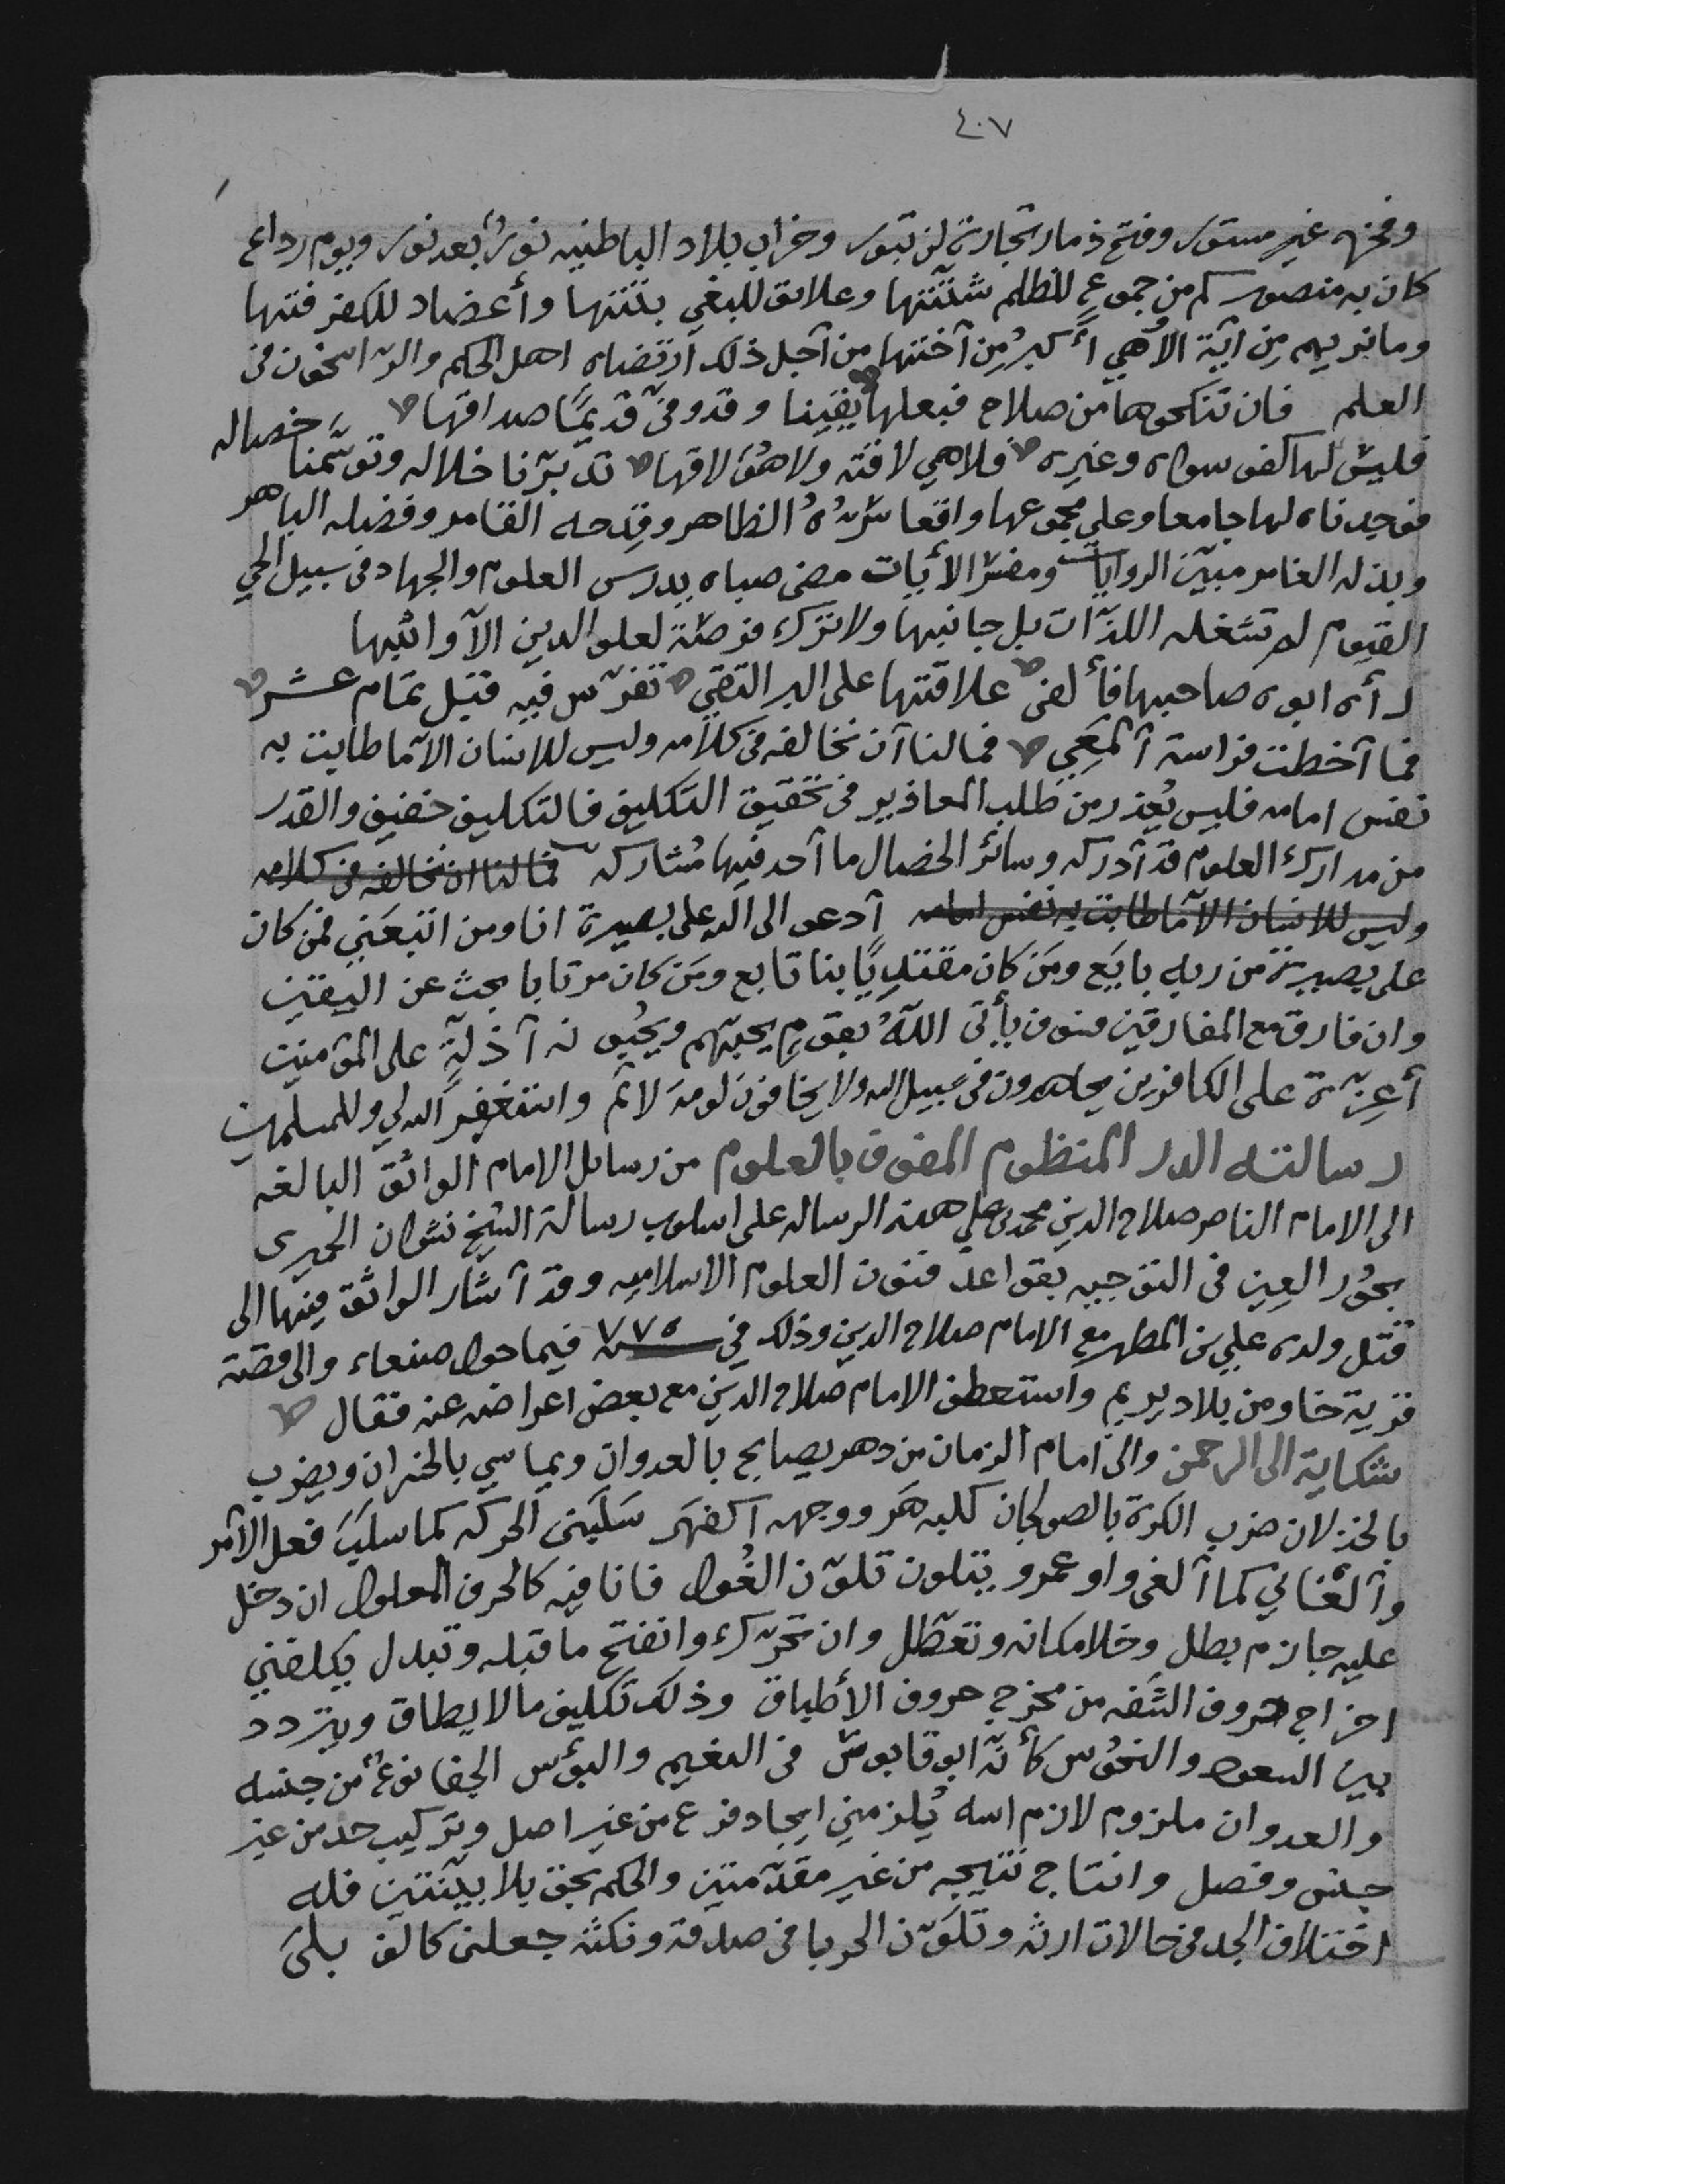 ٤٠٧
وفخره غير مستور وفتح ذمار تجارة لن تبور وخراب بلاد الباطنيه نورٌ بعد نور ويوم رداع
كان به منصور كم من جموعٍ للظلم شتّتتها وعلائق للبغي بتتتها وأعضاد للكفر فتتها
وما نريهم مِن آيةٍ الا هي أكبرُ مِن آختها من آجل ذلك ارتضاه اهل الحكم والرّاسخون في
العلم فان تنكحوها من صلاح فبعلها يقينا وقدومى قديمًا صداقها
فليس لها كفو سواه وغيره فلا هي لاقته ولا هوَ لاقها تدبّرنا خلاله وتوسّمنا خصاله
فوجدناه لها جامعا وعلى مجموعها واقعا سِرّهُ الظاهر وقِدحه القامر وفضله الباهر
وبذله الغامر مبيّن الروايات ومفسّر الأيات مضى صباه بدرس العلوم والجهاد في سبيل الحي
القيوم لم تشغله اللذّات بل جانبها ولا ترك فرصةً لعلو الدين الآ واثبها
رأى ابوه صاحبها فألفى علاقتها على البر التقي تفرّس فيه قبل تمام عشر
فما آخطت فراسة آلمَعِي فما لنا آن نخالفه في كلامه وليس للانسان الآ ما طابت به
نفس امامه فليس يُعذر من طلب المعاذير في تحقيق التكليف فالتكليف خفيف والقدر
من مدارك العلوم قد آدركه وسائر الخصال ما آحد فيها مُشاركه فما لنا ان نخالفه في كلامه
وليس للانسان الآ ما طابت به نفس امامه آدعو الى الله على بصيرة انا ومن اتبعَني فمن كان
على بصيرة من ربه بايَع ومَن كان مقتديًا بنا تابع ومَن كان مرتابا بحث عن اليقين
وان فارق مع المفارقين فسوف يأتي اللّهُ بقومٍ يحبّهم ويحبُّونه آذلةٍ على المؤمنين
أعِزّةٍ على الكافرين يجاهدون في سبيل الله ولا يخافونَ لومةَ لائم وانتغفِرُ الله لي وللمسلمين
رسالته الدر المنظوم المفوف بالعلوم من رسائل الامام الواثق البالغه
الى الامام الناصر صلاح الدين محمد بن علي هذه الرساله على اسلوب رسالة الشيخ نشوان الحميرى
بحوُر العِين في التوجيه بقواعد فنون العلوم الاسلاميه وقد آشار الواثق فيها الى
قتل ولده علي بن المطهر مع الامام صلاح الدين وذلك في سنة ٧٧٥ فيما حول صنعاء والى قصّة
قرية خاو من بلاد يريم واستعطف الامام صلاح الدين مع بعض اعراضه عنه فقال
شكاية الى الرحمن والى امام الزمان من دهر يصابح بالعدوان ويماسي بالخسران ويضرب
بالخذلان ضرب الكرة بالصولجان كلبه هَر ووجهه آكفهَر سَلَبَنى الحركه كما سلبَ فعل الآمر
وآلغاني كما آلغي واو عمرو يتلون تلوّن الغُول فانا فيه كالحرف المعلول ان دخل
عليه جازم بطل وخلا مكانه وتعطّل وان تحرّك وانفتح ما قبله وتبدل يكلفني
اخراج حروف الشَفه من مخرج حروف الأطباق وذلك تكليف ما لا يطاق ويتردد
بين السعود والنحوُس كأنّه ابو قابوسٌ في النعيم والبؤس الجفا نوعٌ من جنسه
والعدوان ملزوم لازم اسه يُلزمني ايجاد فرع من غير اصل وتركيب حد من غير
جنس وفصل وانتاج نتيجه من غير مقدّمتين والحكم بحق بلا بيّنتين فله
اختلاف الجد في حالات ارثه وتلَوّن الحربا في صدقه ونكثه جعلنى كالف بلىَ